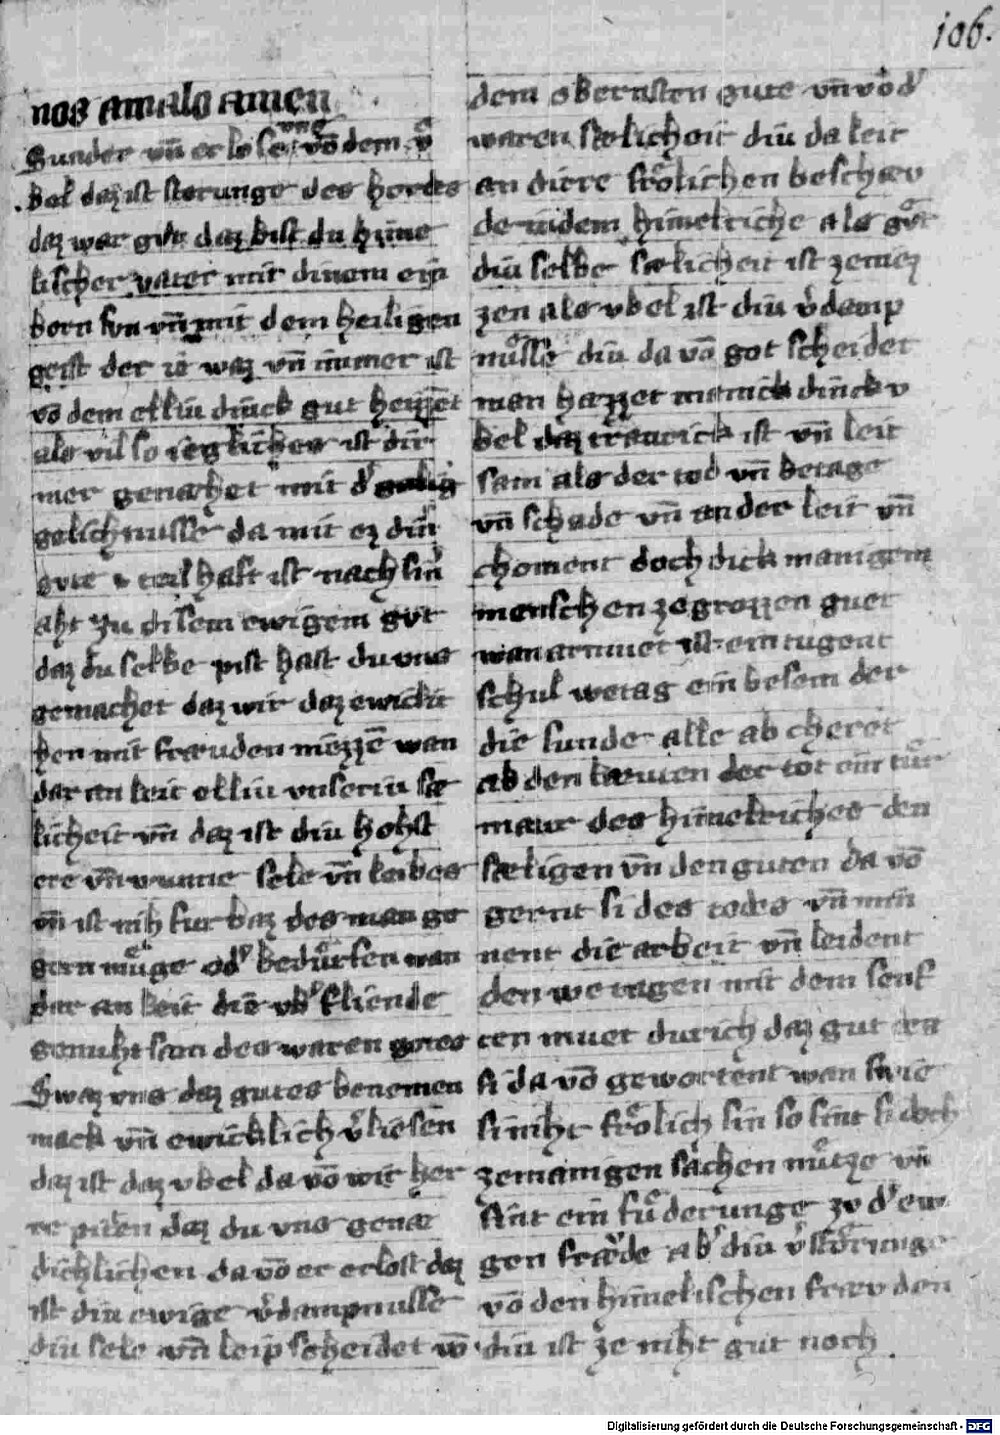 106.
nos amalo amen
Sunder vn̄ erlose vns vō dem v̊
bel daz ist sterunge des hordes
daz war gůt daz bist du hime
lischer vater mit dinem ein
born sun vn̄ mit dem heiligen
geist der ie waz vn̄ immer ist
vō dem elliu dinck gut heizzet
als vil so iegliches ist dir
mer genæhet mit d'
gelichnusse da mit ez din̄
gvte teilhaft ist nach sin̄
aht zu disem ewigem gůt
daz du selbe pist hast du vns
gemachet daz wir daz ewiclī
hen mit fræuden niezzē wan
dar an leit elliu vnseriu sæ
licheit vn̄ daz ist diu hohst
ere vn̄ wunne sele vn̄ leibes
vn̄ ist niht furbaz des man ge
gern můge od' bedůrfen wan
dar an leit die vb'fliende
genuhtsam des waren gotes
Swaz vns daz gutes benemen
mack vn̄ ewicklich v'liesen
daz ist daz vbel da vō wir her
re piten daz du vns genæ
dichlichen da vō er erlost daz
ist diu ewige v'dampnusse
diu sele vn̄ leip scheidet vō
dem obernsten gute vn̄ vō d'
waren sælicheit diu da leit
an diere frőlichen beschæv
de in dem himelriche als gůt
diu selbe sælicheit ist ze niez
zen als vbel ist diu v'damp
nůsse diu da vō got scheidet
man hazzet manick dinck v
bel daz traurick ist vn̄ leit
sam als der tod vn̄ betage
vn̄ schade vn̄ ander leit vn̄
choment doch dick manigem
menschen ze grozzen guet
wan armuet ist ein tugent
schul wetag ein besem der
die sunde alle ab cheret
ab den læuten der tot ein tůr
maur des himelriches den
sæligen vn̄ den guten da vō
gernt si des todes vn̄ min
nent die arbeit vn̄ leident
den wetagen mit dem senf
ten muet durich daz gut
si da vō gewortent wan swie
si niht frőlich sin so sint si doch
ze manigen sachen nůtze vn̄
sint ein fůderunge zv d' ew
gen fræude ab' diu v'stőrunge
vō den himelischen fræuden
diu ist ze niht gut noch
Digitalisierung gefördert durch die Deutsche Forschungsgemeinschaft - DFG